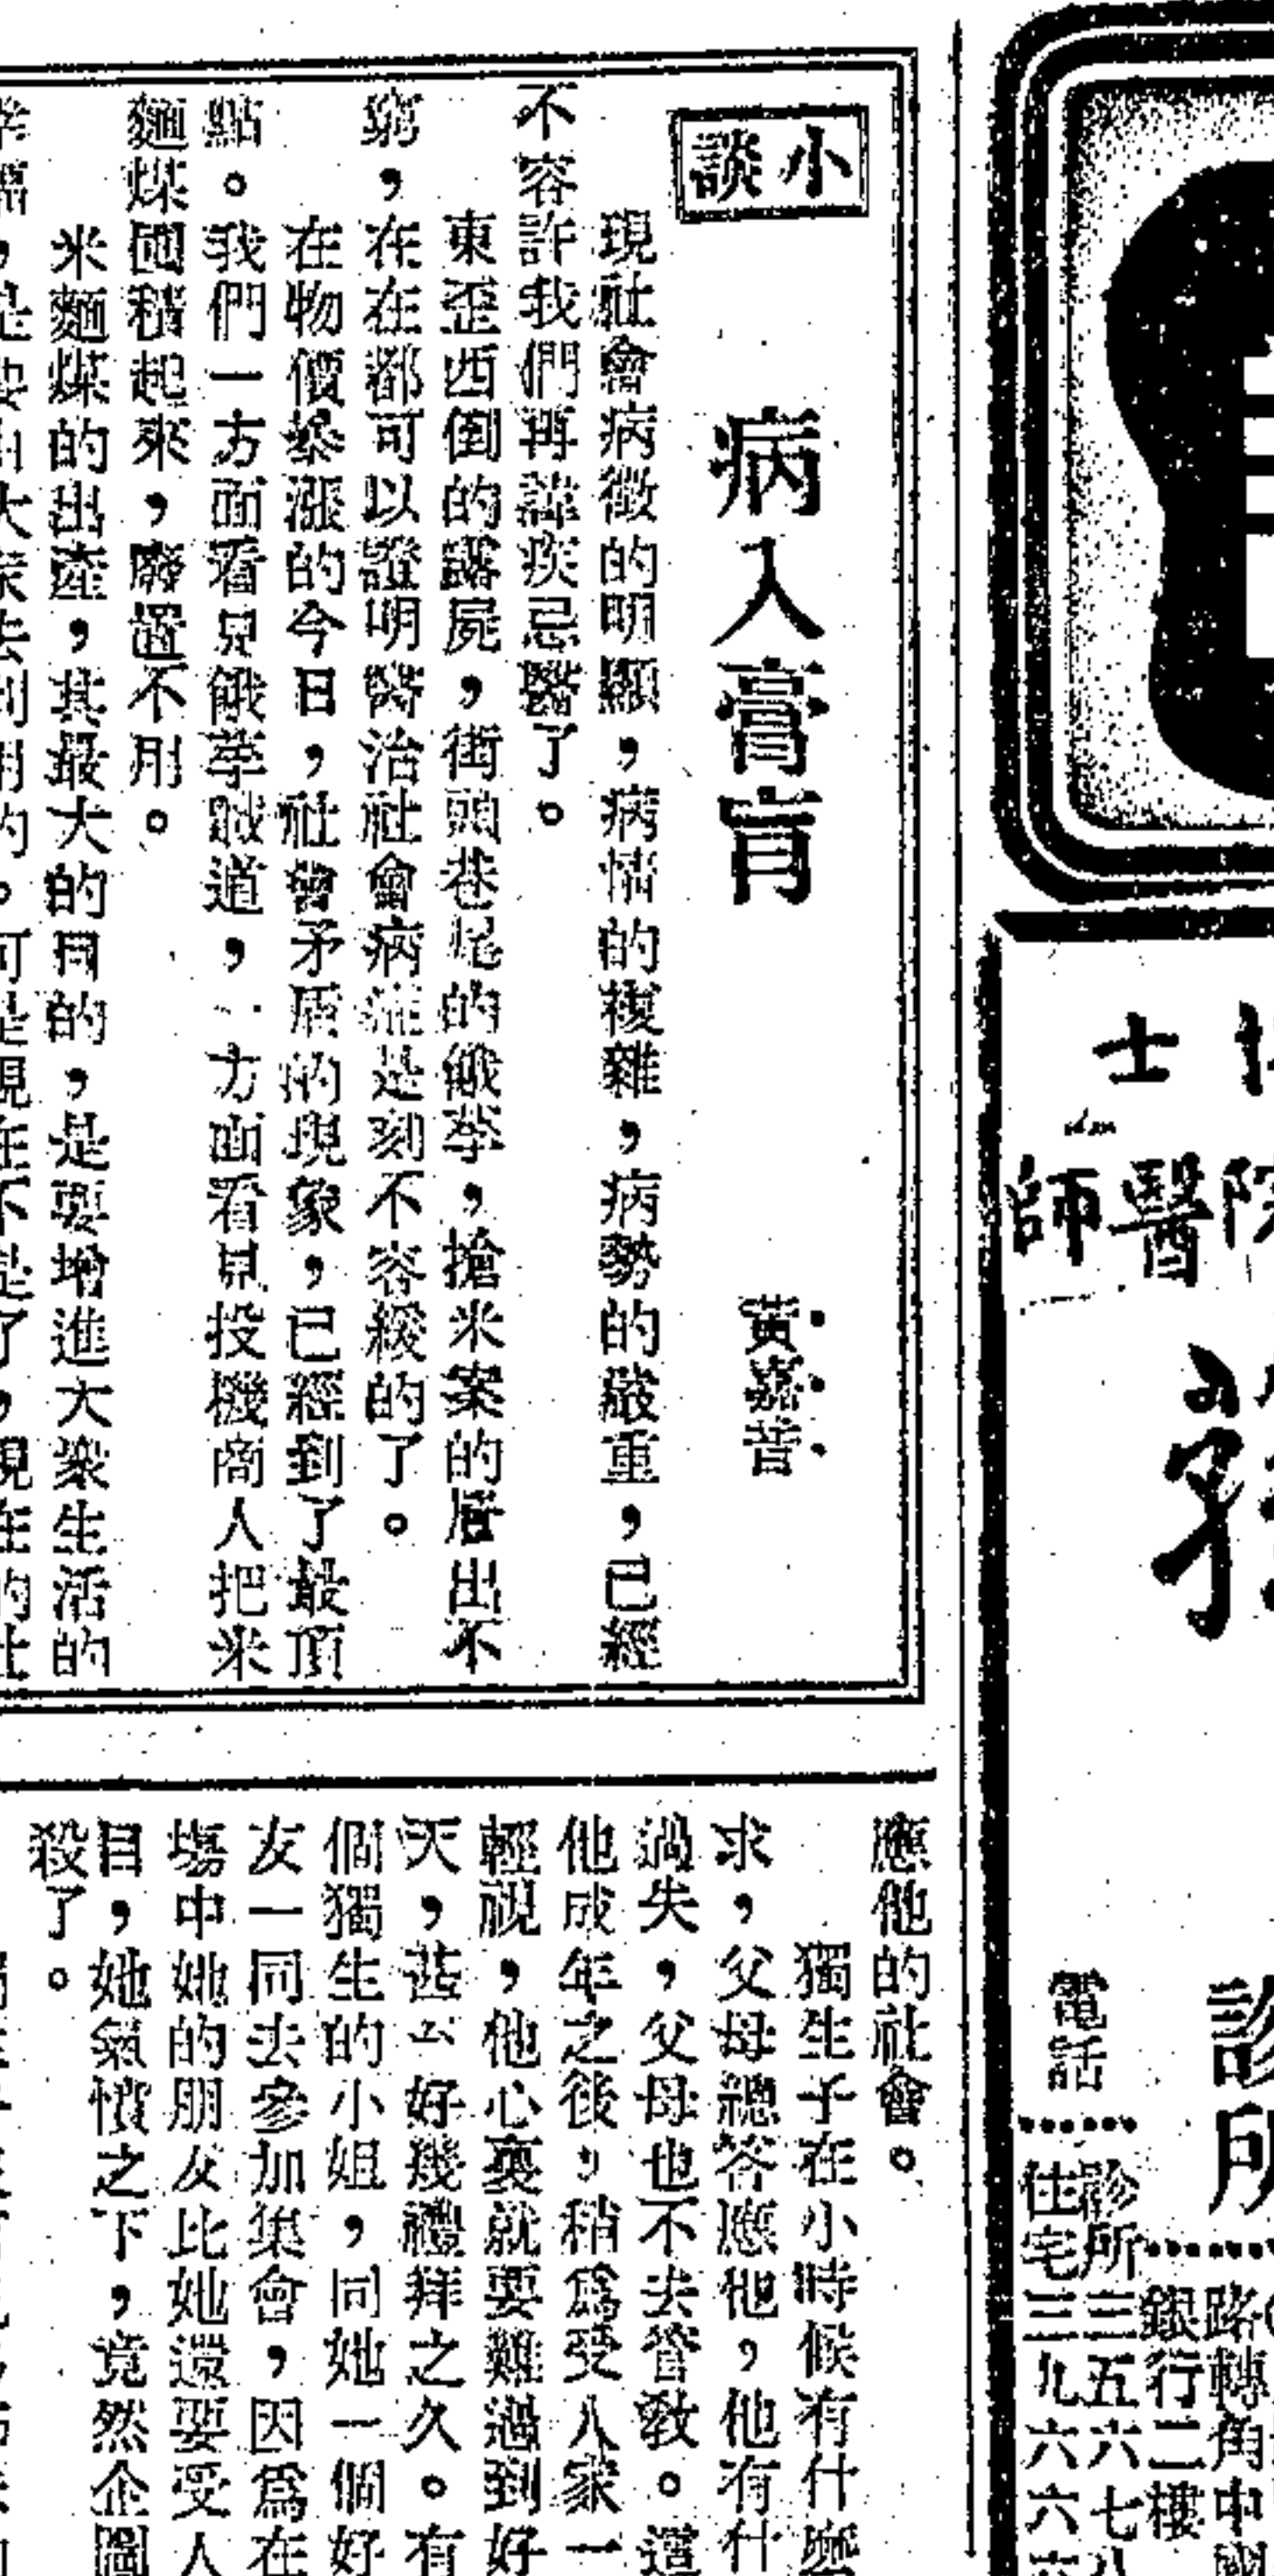 小談
病入膏肓
黃嘉音
現社會病徵的明顯，病情的複雜，病勢的嚴重，已經
不容許我們再諱疾忌醫了。
東歪西倒的露屍，街頭巷尾的餓莩，搶米案的層出不
窮，在在都可以證明醫治社會病症是刻不容緩的了。
在物價暴漲的今日，社會矛盾的現象，已經到了最頂
點。我們一方面看見餓莩載道，一方面看見投機商人把米
麵煤囤積起來，廢置不用。
米麵煤的出產，其最大的目的，是要增進大衆生活的
應他的社會。
獨生子在小時候有什麼
求，父母總答應他，他有什
過失，父母也不去管教。這
他成年之後，稍爲受人家一
輕視，他心裏就要難過到好
天，甚么好幾禮拜之久。有
個獨生的小姐，同她一個好
友一同去參加集會，因爲在
場中她的朋友比她還要受人
目，她氣憤之下，竟然企圖
殺了。
士
醫師
診所
電話
診所三五六七八
住宅三九六六六
路轉角中國
銀行二樓